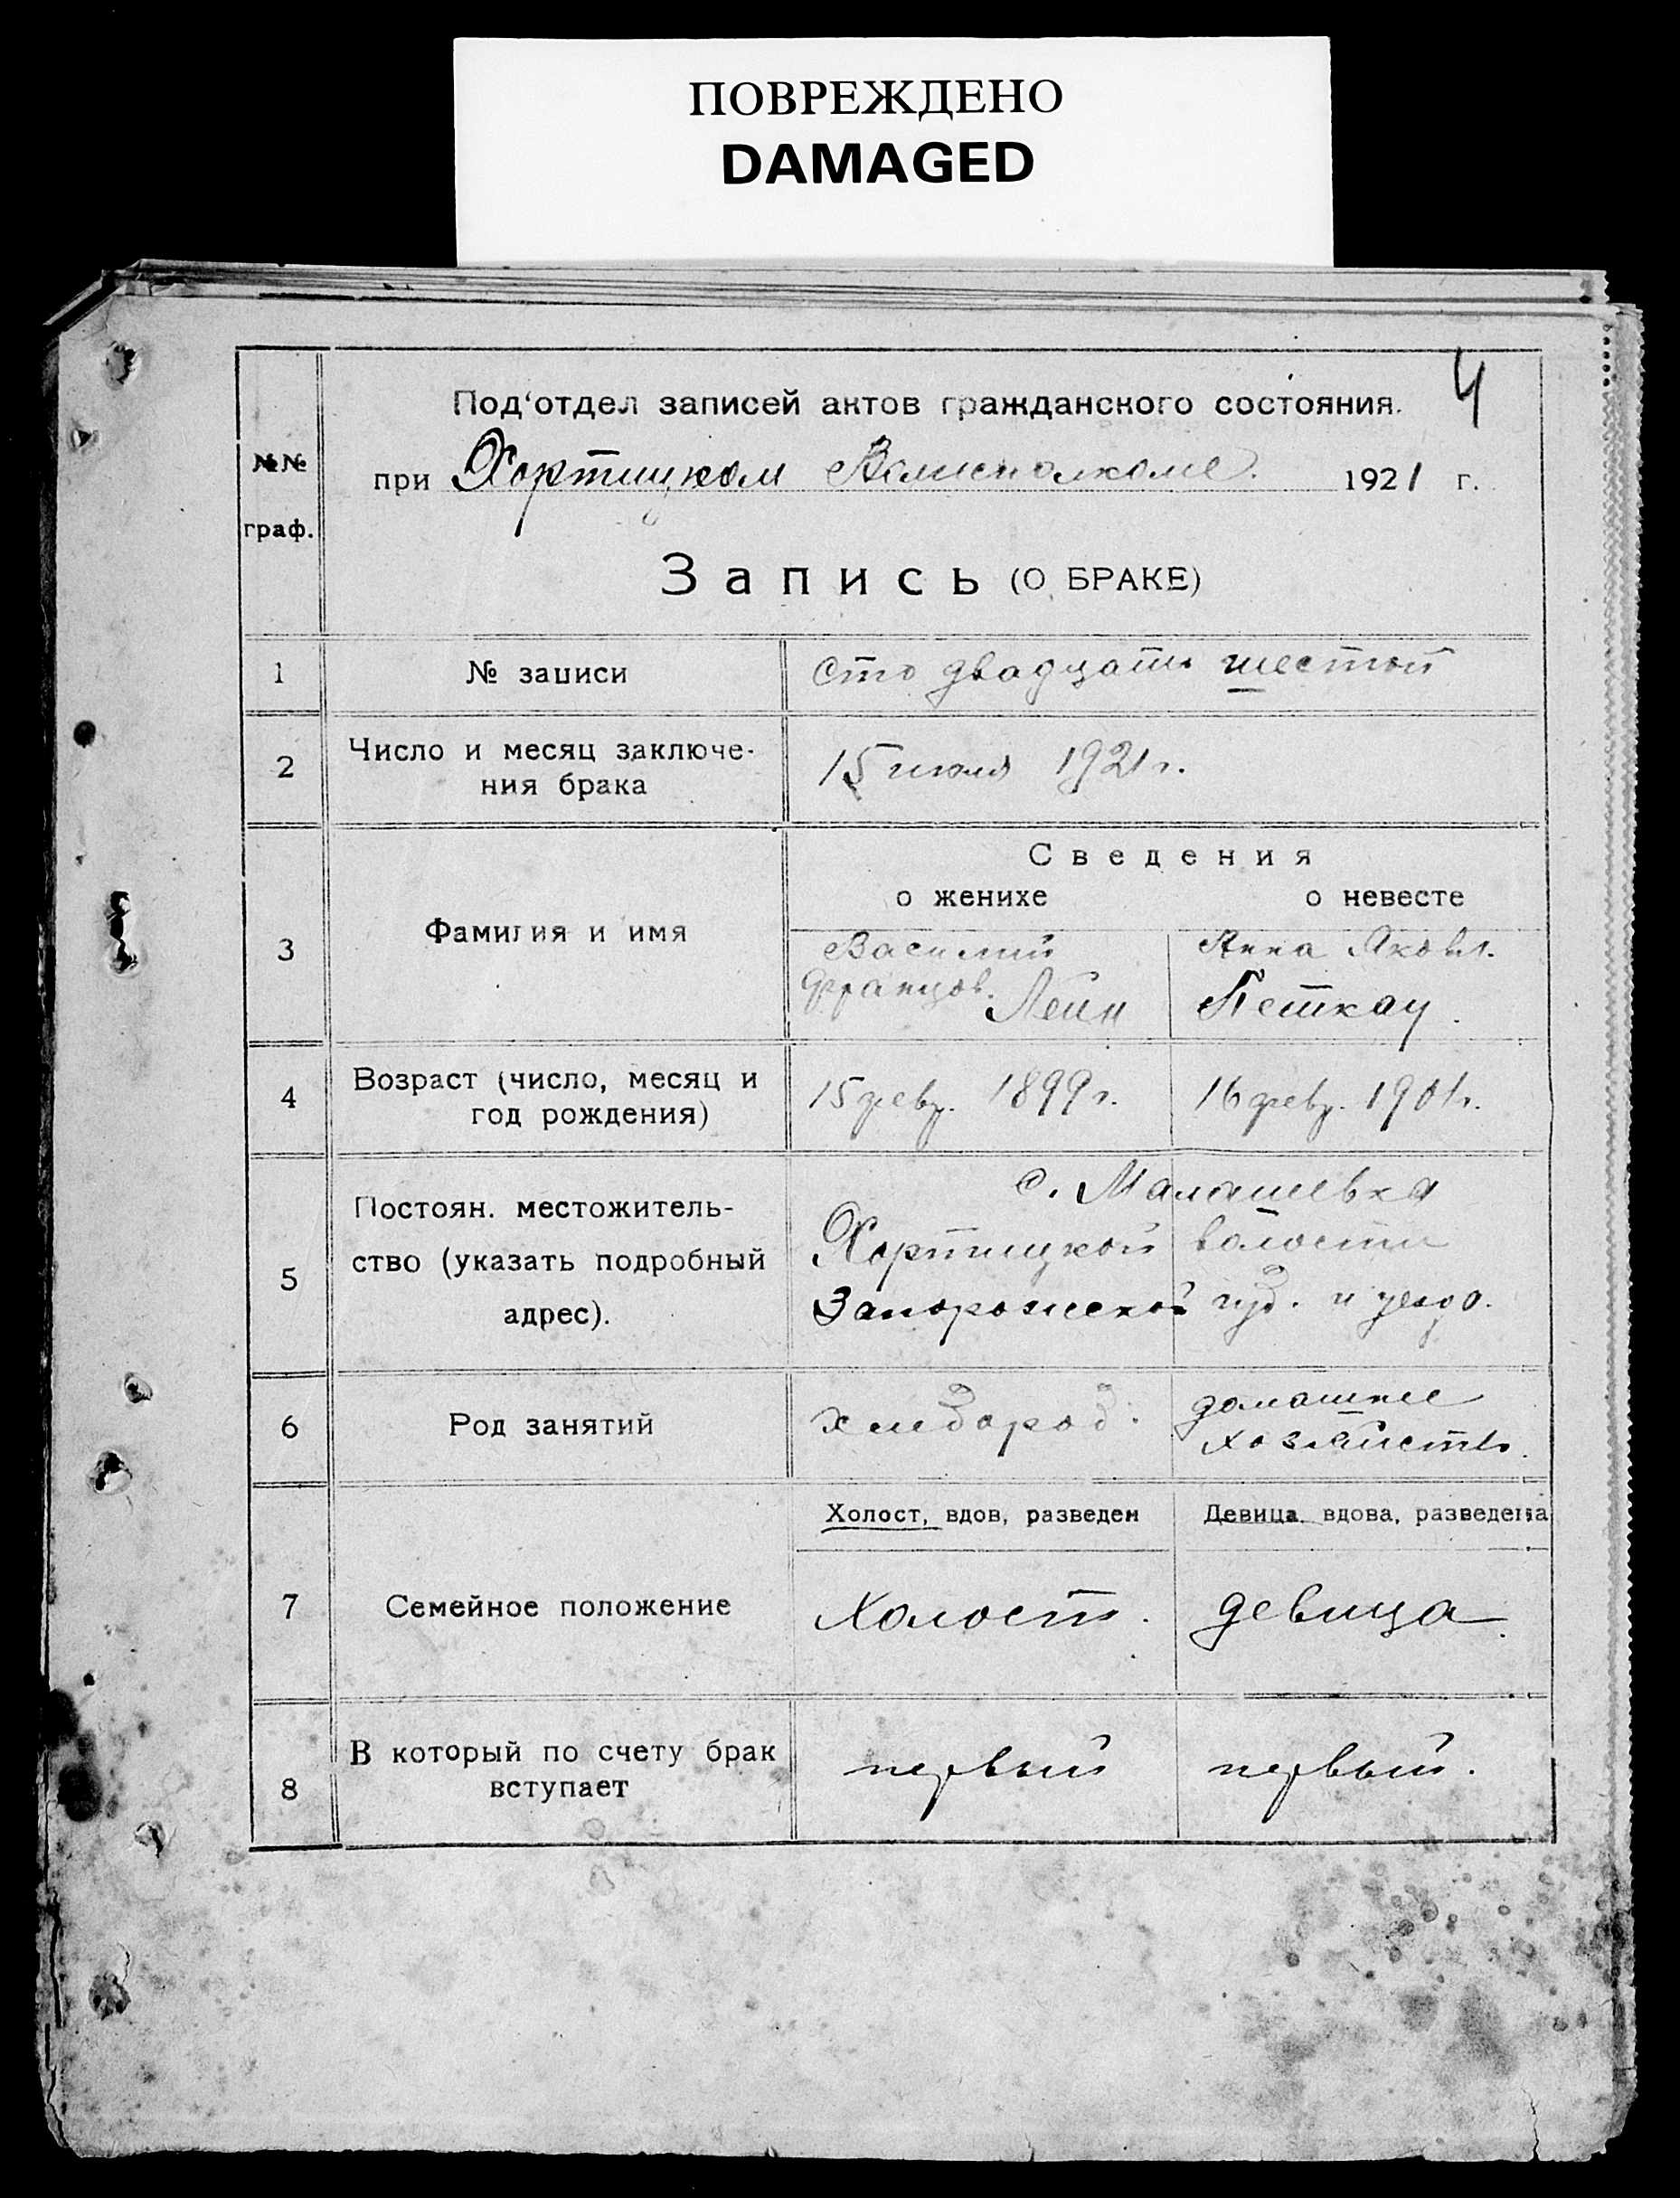 ПОВРЕЖДЕНО
DAMAGED
4
Под‘отдел записей актов гражданского состояния.
№№
граф.
при Хортицком Волисполкоме. 1921 г.
Запись (О БРАКЕ)
1 № записи Сто двадцать шестой
2 Число и месяц заключе-
ния брака 15 июля 1921 г.
Сведения
о женихе о невесте
3 Фамилия и имя
Василий Анна Яковл.
Францов. Леин Петкау.
4 Возраст (число, месяц и
год рождения)
15 февр. 1899 г. 16 февр. 1901 г.
5 Постоян. местожитель-
ство (указать подробный
адрес).
с. Малашевка
Хортицкой волости
Запорожской губ. и уезда.
6 Род занятий хлебороб. домашнее
хозяйство.
Холост, вдов, разведен Девица, вдова, разведена
7 Семейное положение Холост. девица.
8 В который по счету брак
вступает первый первый.